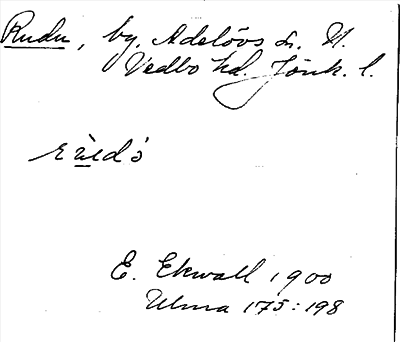 Rudu, by, Adelövs sn. N.
Vedbo hd. Jönk. l.
E. Ekwall 1900
Ulma 175:198